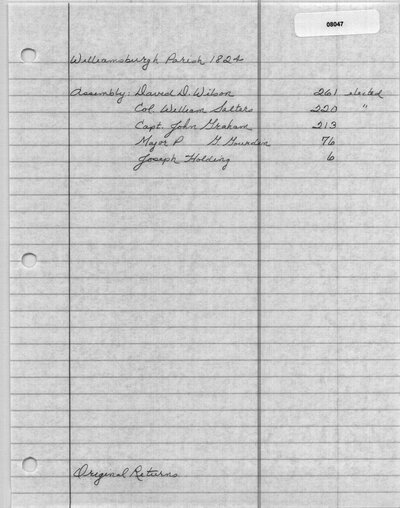 08047
Williamsburgh Parish 1824
Assembly: David D. Wilson 261 elected
Col. William Salters 220 "
Capt. John Graham 213
Major P G. Gourden 76
Joseph Holding 6
Original Returns